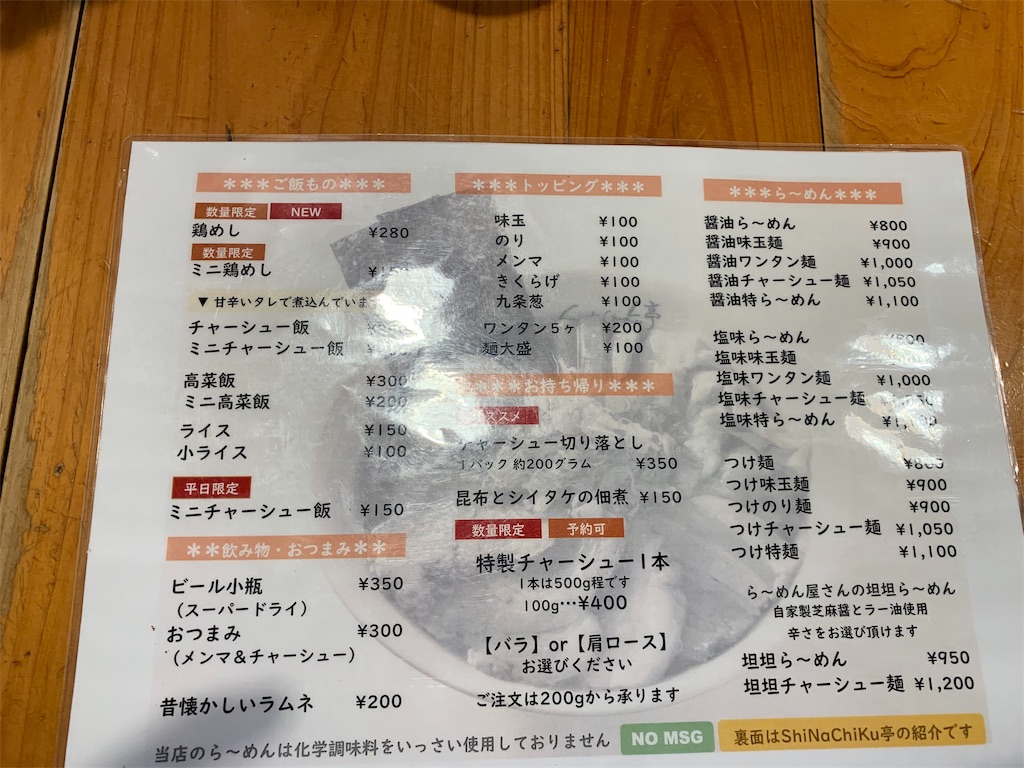 ***ご飯もの***
数量限定 NEW
鶏めし ¥280
数量限定
ミニ鶏めし
▼ 甘辛いタレで煮込んでいま
チャーシュー飯
ミニチャーシュー飯
高菜飯 ¥300
ミニ高菜飯 ¥200
ライス ¥150
小ライス ¥100
平日限定
ミニチャーシュー飯 ¥150
**飲み物・おつまみ**
ビール小瓶 ¥350
(スーパードライ)
おつまみ ¥300
(メンマ&チャーシュー)
昔懐かしいラムネ ¥200
***トッピング***
味玉 ¥100
のり ¥100
メンマ ¥100
きくらげ ¥100
九条葱 ¥100
ワンタン5ヶ ¥200
麺大盛 ¥100
****お持ち帰り***
ススメ
チャーシュー切り落とし
1パック 約200グラム ¥350
昆布とシイタケの佃煮 ¥150
数量限定 予約可
特製チャーシュー1本
1本は500g程です
100g…¥400
【バラ】or【肩ロース】
お選びください
ご注文は200gから承ります
***ら〜めん***
醤油ら〜めん ¥800
醤油味玉麺 ¥900
醤油ワンタン麺 ¥1,000
醤油チャーシュー麺 ¥1,050
醤油特ら〜めん ¥1,100
塩味ら〜めん ¥800
塩味味玉麺
塩味ワンタン麺 ¥1,000
塩味チャーシュー麺
塩味特ら〜めん
つけ麺 ¥800
つけ味玉麺 ¥900
つけのり麺 ¥900
つけチャーシュー麺 ¥1,050
つけ特麺 ¥1,100
ら〜めん屋さんの坦坦ら〜めん
自家製芝麻醤とラー油使用
辛さをお選び頂けます
坦坦ら〜めん ¥950
坦坦チャーシュー麺 ¥1,200
当店のら〜めんは化学調味料をいっさい使用しておりません NO MSG 裏面はShiNaChiKu亭の紹介です